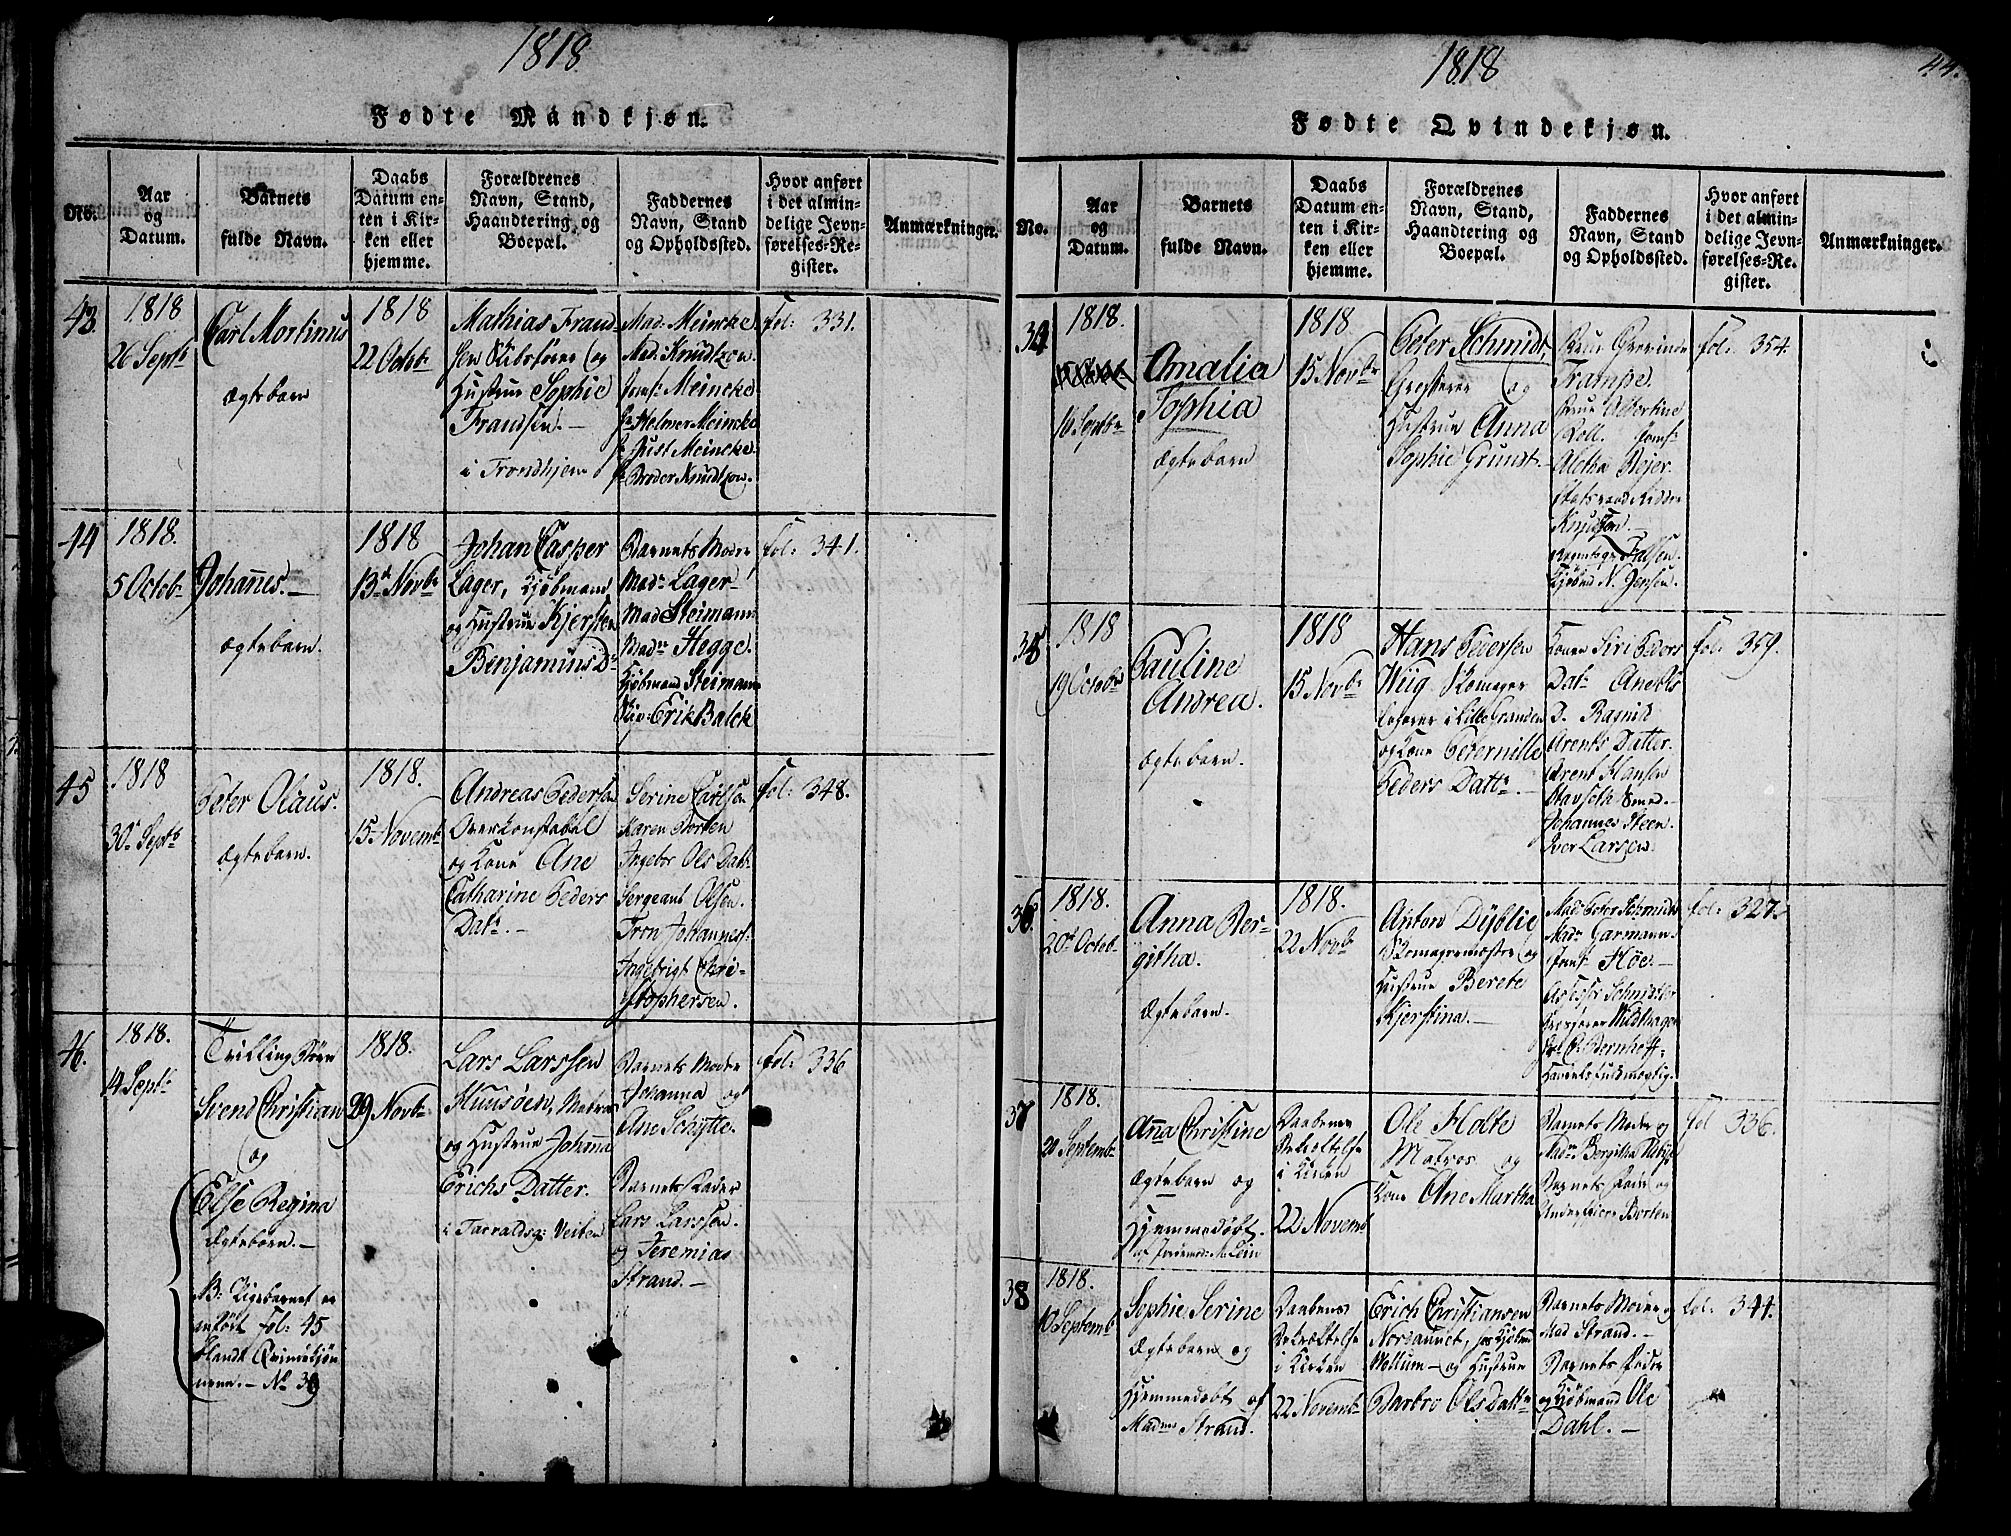 1818
Fødte Mandkjøn.
No.
Aar
og
Datum.
Barnets
fulde Navn.
Daabs
Datum en-
ten i Kir-
ken eller
hjemme.
Forældrenes
Navn, Stand,
Haandtering og
Boepæl.
Faddernes
Navn, Stand
og Opholdssted.
Hvor anført
i det almin-
delige Jevn-
førelses-Re-
gister.
Anmærkninger.
43
1818
26 Septb
Carl Mortinus
Ægtebarn
1818
22 Octob
Mathias Frand
sen Skibsfører og
Hustrue Sophie
Frandsen.-
i Trondhjem
Mad. Meincke
Mad: Knudtzon
Jomf: Meincke
Hr Helmer Meincke
Hr Just Meincke
Hr Broder Knudtzon.
fol: 331.
44
1818.
5 Octob
Johannes.-
Ægtebarn.
1818
13 Novbr
Johan Casper
Lager, Kjøbmand
og Hustrue Kjersten
Benjamins Dr
Barnets Moder
Madr Lager
Mad Steimann
Madr Hegge.
Kjøbmand Steimann
Erik Balck
fol: 341.
45
1818
30 Septb
Peter Olaus.
Ægtebarn.
1818.
15 Novemb
Andreas Pederson
Overkonstabel
og Kone Ane
Catharine Peders
Datr.-
Serine Carlson
Karen Borten
Ingebor Ols Datr
Sergeant Olsen.
Tron Johannes:
Ingebrigt Chri-
stophersen.
fol: 348.
46.
1818.
14 Septb
Tvilling Børn
Svend Christian
og
Else Regina
Ægtebørn.-
NB: Pigebarnet er
anført fol: 45
blandt Qvindekjøn
nene.- No 39
1818.
29 Novbr
Lars Larssen
Stuusøen, Matros
og Hustrue Johanna
Erichs Datter.
i Tarraldsg: Veiten
Barnets Moder
Johanna og
Ane Schytte.
Barnets Fader
Lars Larssen.
og Jeremias
Strand.-
fol: 336
1818
44.
Fødte Qvindekjøn.
No.
Aar
og
Datum.
Barnets
fulde Navn.
Daabs
Datum en-
ten i Kir-
ken eller
hjemme.
Forældrenes
Navn, Stand,
Haandtering og
Boepæl.
Faddernes
Navn, Stand
og Opholdssted.
Hvor anført
i det almin-
delige Jevn-
førelses-Re-
gister.
Anmærkninger.
34
1818.
10 Septbr
Amalia
Sophia
Ægtebarn
1818
15 Novbr
Peter Schmidt,
Grosserer og
Hustrue Anna
Sophie Grünst.
Frue Grevinde
Trampe.
Frue Albertine
Lell. Jomf
Aletha Bejer
Statsraad Ridder
Knudtzon.-
Falsen.
Kjøbmd N. Jensen.
fol: 354.
35
1818
19 Octobr
Pauline
Andrea.
Ægtebarn.
1818
15 Novbr
Hans Pedersen
Wiig Skomager
boer i Lille Granden
og Kone Pedernille
Peders Dattr.-
Konen Siri Peders
Datr Anects
D. Rasnik
Arents Datter.
Arent Hansen
Stavseth Smed.-
Johannes Steen.
Iver Larsen.
fol: 359.
36.
1818.
20 Octob
Anna Ber-
githa.
Ægtebarn.
1818.
22 Novb
Anton Dyblie
Skomagermester og
Hustrue Berete
Kjerstina.-
Mad Peter Schmidt
Madr Garmann.
Jomf Høe.-
Schmidt
Wildhagen
Bernhoff
Handelsfuldmægtig.
fol: 327.
37
1818.
20 Septemb
Anna Christine
Ægtebarn og
Hjemmedøbt.
af Jordemod: M. Lein
Daabens
Bekræftelse
i Kirken
22 Novemb
Ole Holte
Matros og
Kone Ane Martha
Barnets Moder og
Madr Bergitha
Barnets Fader og
Underofficer Borten
fol 336.
38
1818.
10 Septemb
Sophie Serine
Ægtebarn og
Hjemmedøbt af
Madme Strand.
Daabens
Bekræftelse
i Kirken
22 Novemb
Erich Christiansen
Nordaunet, Kjøbmd
Mellum- og Hustrue
Barbro Ols Dattr
Barnets Moder og
Mad Strand.-
Barnets Fader
og Kjøbmand Ole
Dahl.-
fol: 344.